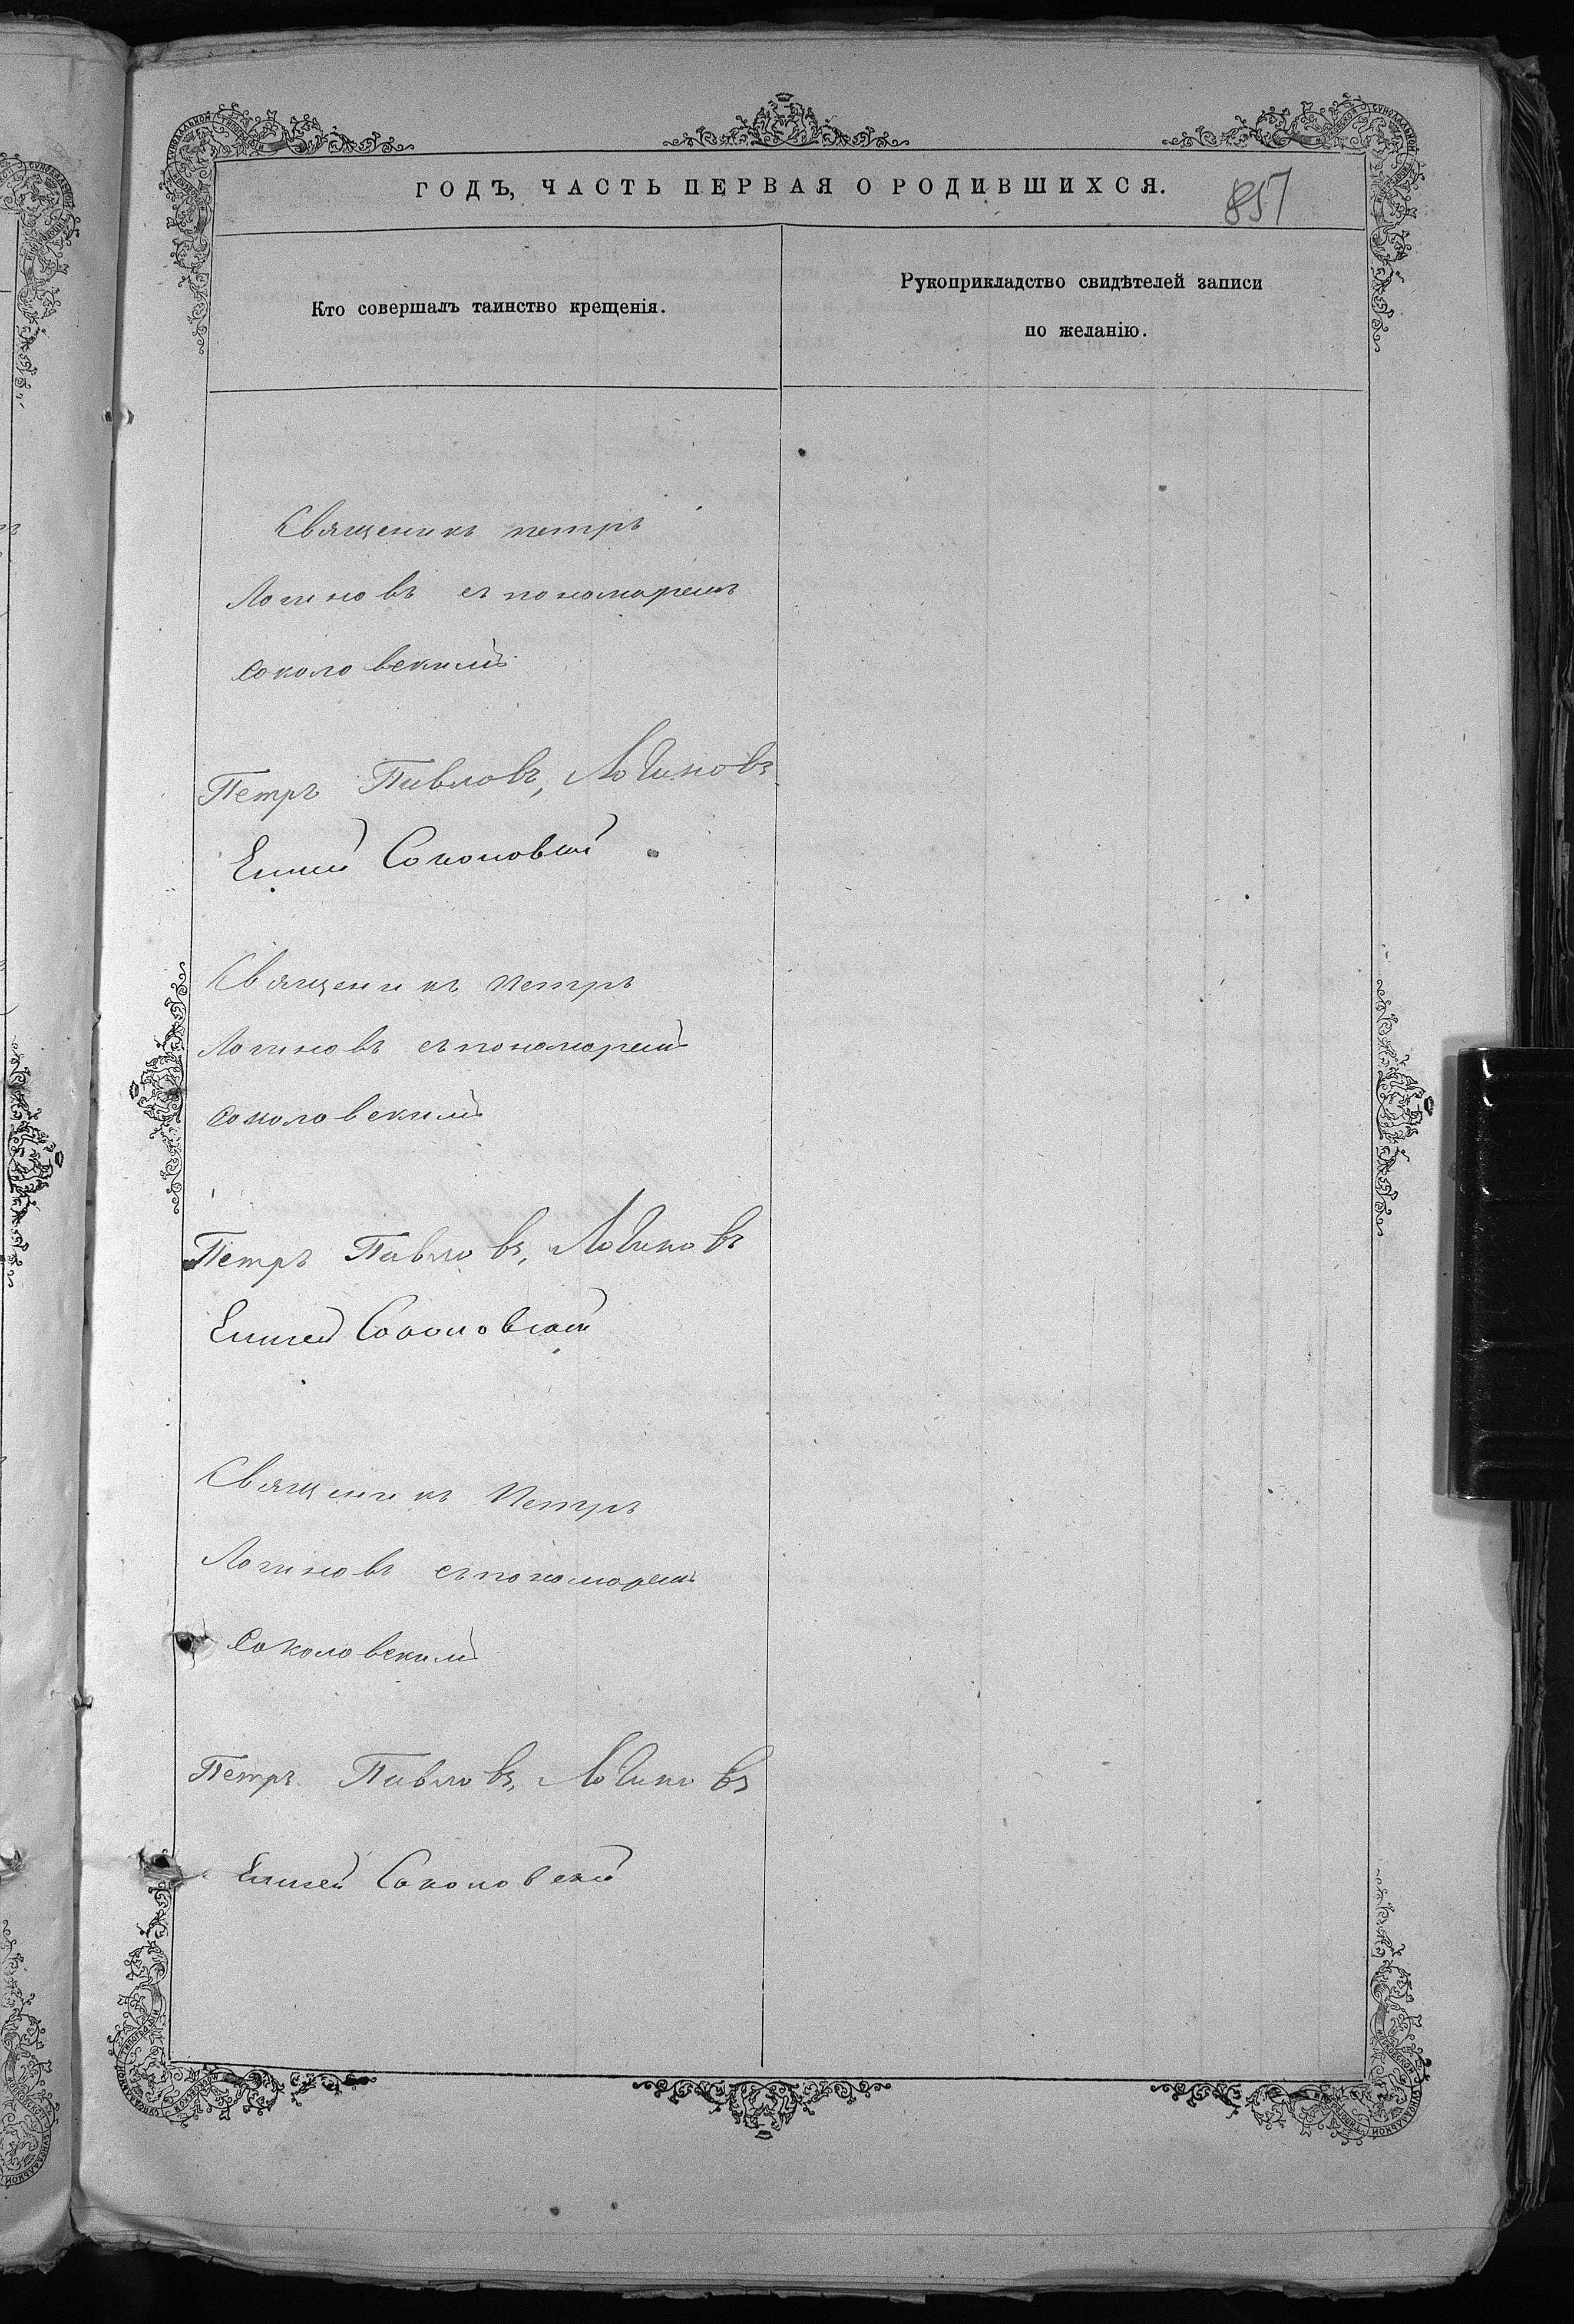 ГОДЪ, ЧАСТЬ ПЕРВАЯ О РОДИВШИХСЯ.
857
Кто совершалъ таинство крещенія.
Рукоприкладство свидѣтелей записи
по желанію.
Священикъ петръ
Логиновъ съ пономаремъ
соколовскимъ
Петръ Павловъ, Логиновъ
Елисей Соколовский
Священикъ Петръ
Логиновъ съ пономаремъ
соколовскимъ
Петръ Павловъ, Логиновъ
Елисей Соколовский
Священикъ Петръ
Логиновъ съ пономаремъ
Соколовскимъ
Петръ Павловъ, Логиновъ
Елисей Соколовский